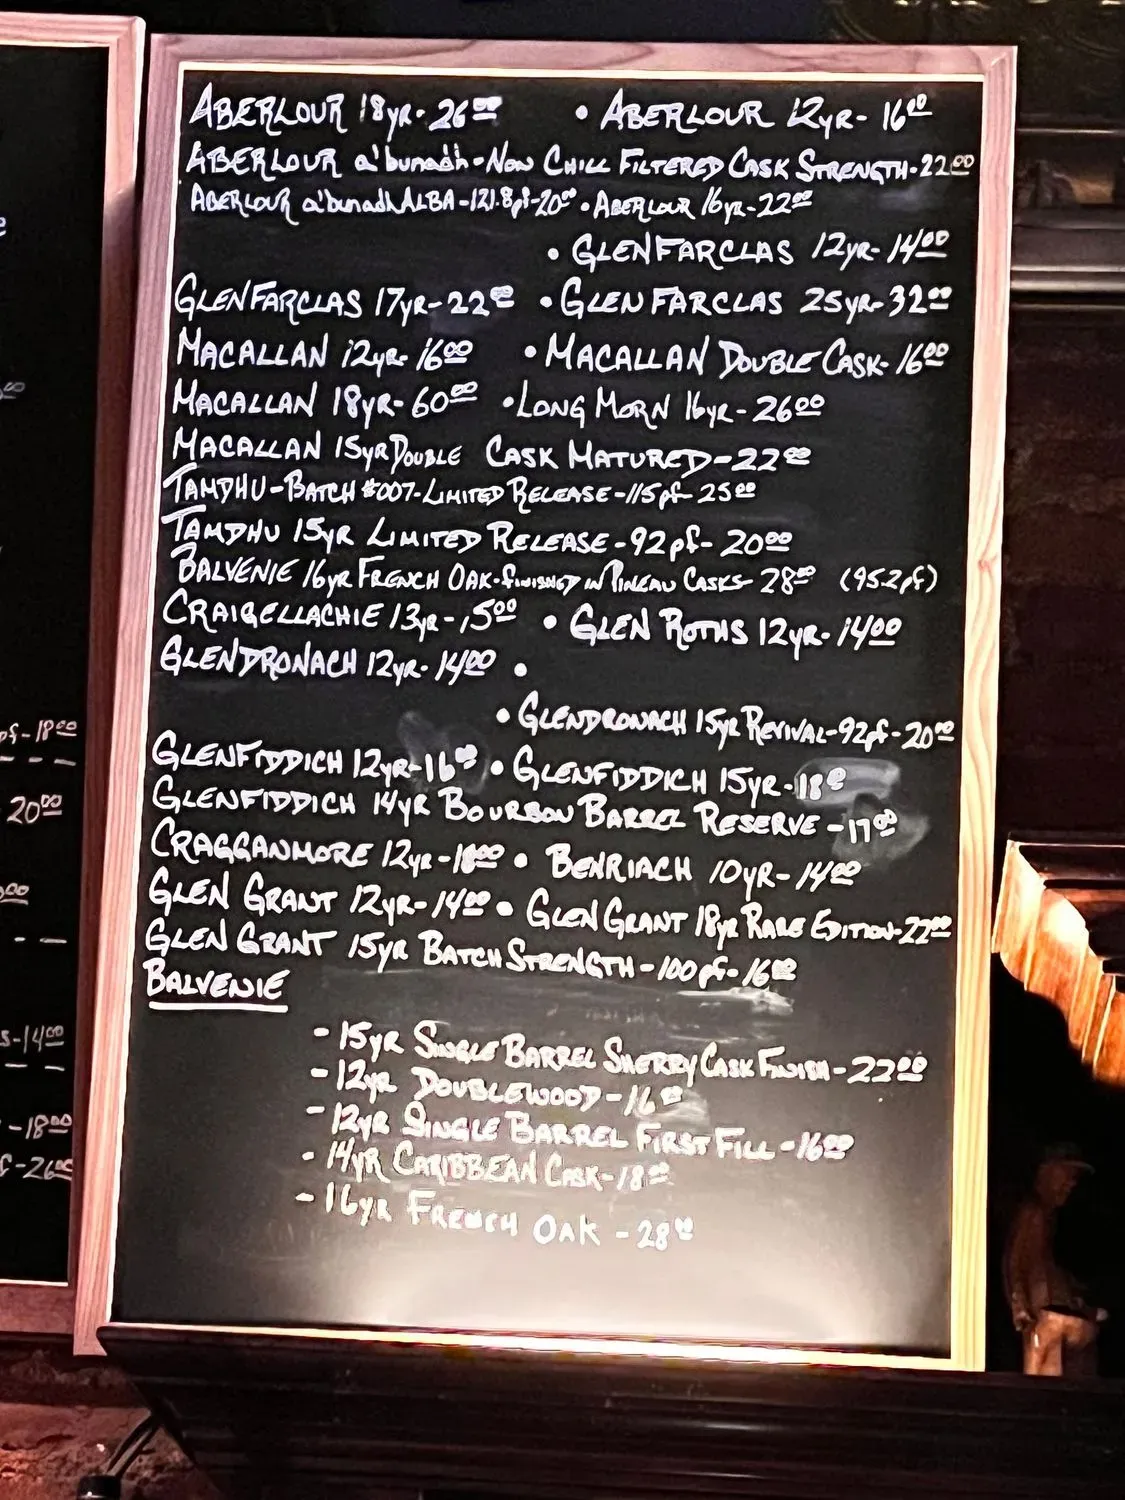 ABERLOUR 18yR- 26⁰⁰ • ABERLOUR 12yR- 16⁰⁰
ABERLOUR a'bunadh-NON CHILL FILTERED CASK STRENGTH-22⁰⁰
ABERLOUR a'bunadh ALBA-121.8pf-20⁰⁰ • ABERLOUR 16yR-22⁰⁰
• GLENFARCLAS 12yR- 14⁰⁰
GLENFARCLAS 17yR-22⁰⁰ • GLENFARCLAS 25yR-32⁰⁰
MACALLAN 12yR- 16⁰⁰ • MACALLAN DOUBLE CASK- 16⁰⁰
MACALLAN 18yR- 60⁰⁰ • LONG MORN 16yR-26⁰⁰
MACALLAN 15yR DOUBLE CASK MATURED-22⁰⁰
TAMDHU-BATCH #007-LIMITED RELEASE-115pf- 25⁰⁰
TAMDHU 15yR LIMITED RELEASE-92pf- 20⁰⁰
BALVENIE 16yR FRENCH OAK-FINISHED IN PINEAU CASKS 28⁰⁰ (95.2pf)
CRAIGELLACHIE 13yR-15⁰⁰ • GLEN ROTHS 12yR- 14⁰⁰
GLENDRONACH 12yR- 14⁰⁰ •
• GLENDRONACH 15yR REVIVAL-92pf-20⁰⁰
pf-18⁰⁰
GLENFIDDICH 12yR-16⁰⁰ • GLENFIDDICH 15yR-18⁰⁰
20⁰⁰
GLENFIDDICH 14yR BOURBON BARREL RESERVE -17⁰⁰
CRAGGANMORE 12yR-18⁰⁰ • BENRIACH 10yR- 14⁰⁰
GLEN GRANT 12yR-14⁰⁰ • GLEN GRANT 18yR RARE EDITION-22⁰⁰
GLEN GRANT 15yR BATCH STRENGTH-100pf-16⁰⁰
BALVENIE
s-14⁰⁰
- 15yR SINGLE BARREL SHERRY CASK FINISH-22⁰⁰
- 12yR DOUBLEWOOD-16⁰⁰
-18⁰⁰
- 12yR SINGLE BARREL FIRST FILL -16⁰⁰
f-26⁰⁰
- 14yR CARIBBEAN CASK-18⁰⁰
- 16yR FRENCH OAK -28⁰⁰